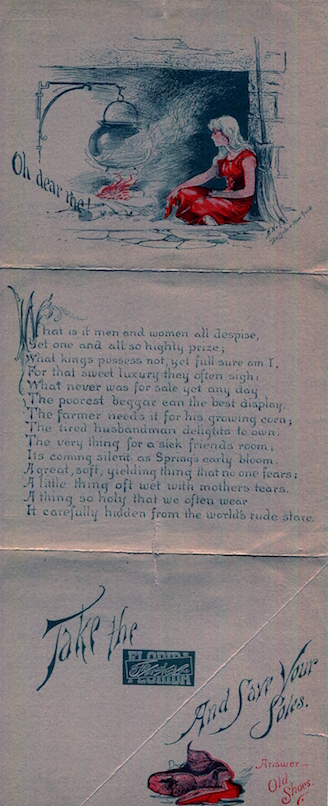 Oh dear me!
What is it men and women all despise,
Yet one and all so highly prize;
What kings possess not, yet full sure am I,
For that sweet luxury they often sigh;
What never was for sale yet any day
The poorest beggar can the best display;
The farmer needs it for his growing corn;
The tired husbandman delights to own.
The very thing for a sick friends room,
Its coming silent as Springs early bloom.
A great, soft, yielding thing that no one fears;
A little thing oft wet with mothers tears.
A thing so holy that we often wear
It carefully hidden from the world's rude stare.
Take the
FLORIDA
FLORIDA
And Save Your
Soles.
Answer—
Old
Shoes.